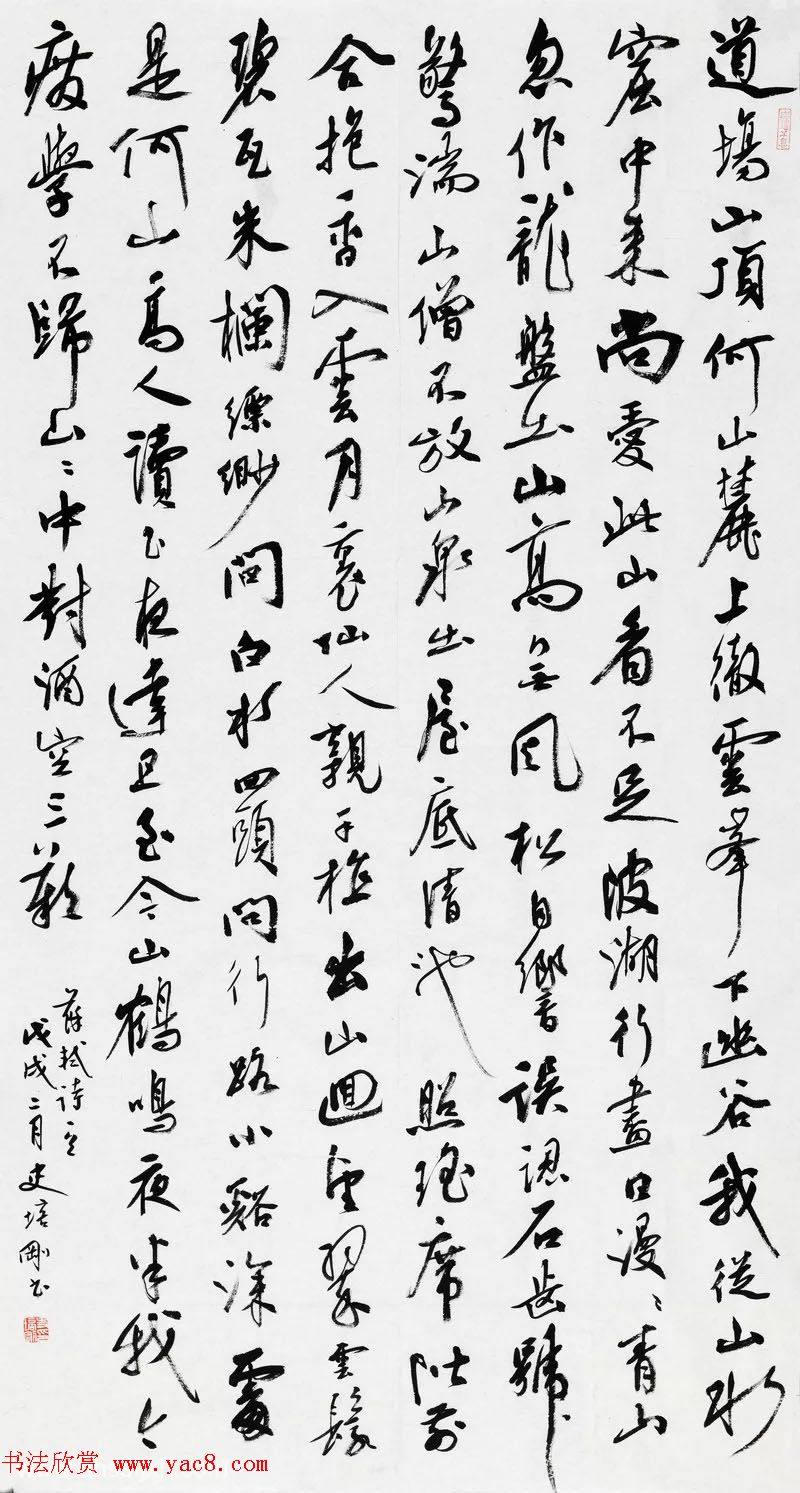 道場山頂何山麓上徹雲峯下幽谷我從山水
窟中來尚愛此山看不足陂湖行盡白漫〻青山
忽作龍盤出山高無風松自響誤認石齒號
驚湍山僧不放山泉出屋底清池照瑤席階前
合抱香入雲月裏仙人親手植出山迴望翠雲鬟
碧瓦朱欄縹緲間白水田頭問行路小谿深處
是何山高人讀書夜達旦至今山鶴鳴夜半我今
廢學不歸山〻中對酒空三歎
蘇軾詩
戊戌二月史培剛書
书法欣赏 www.yac8.com